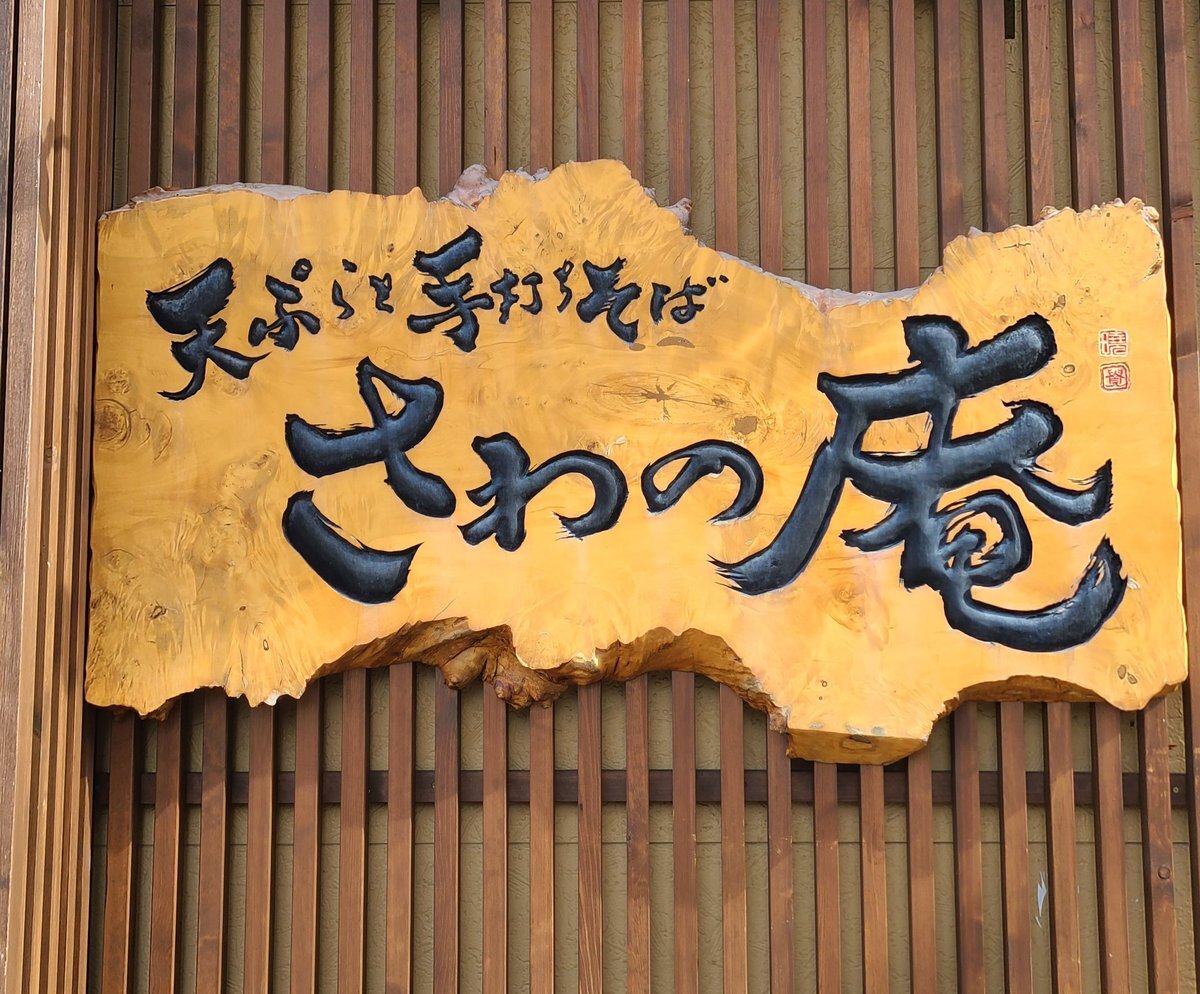 天ぷらと手打ちそば
さわの庵